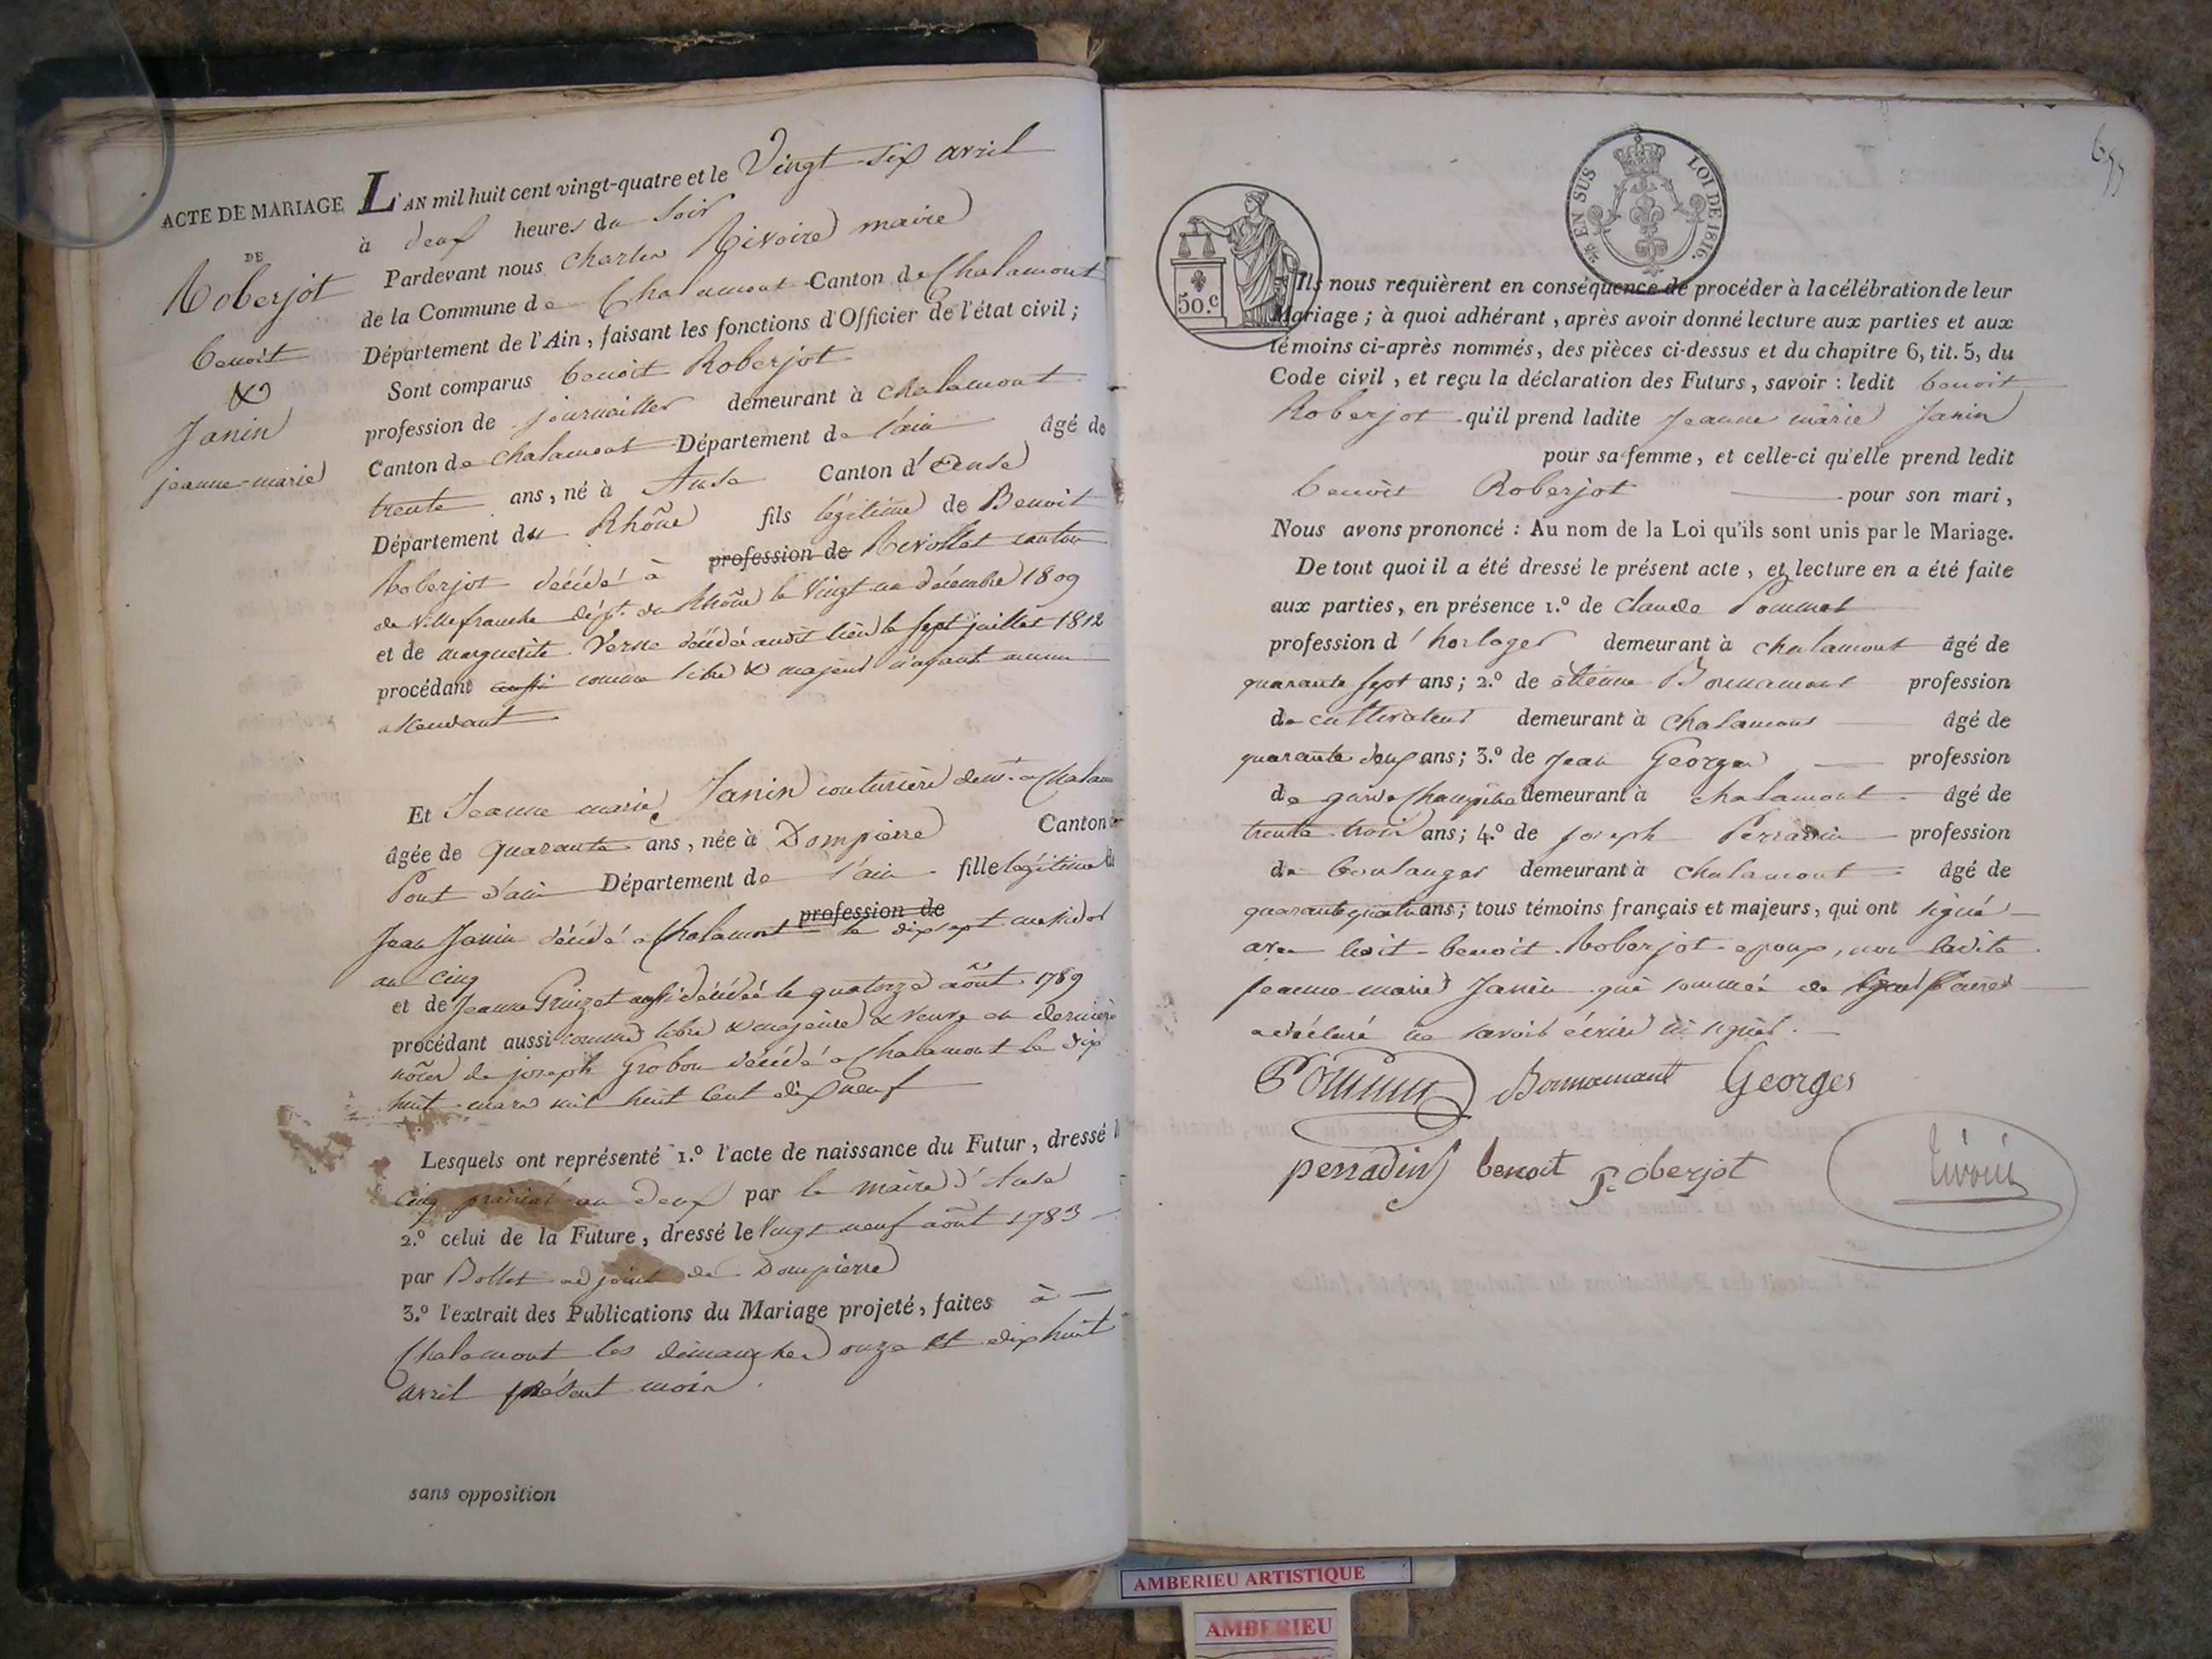 ACTE DE MARIAGE
DE
Roberjot
benoit
&
Janin
jeanne-marie
L'AN mil huit cent vingt-quatre et le Vingt six avril
à deux heures du soir
Pardevant nous Charles Rivoire maire
de la Commune de Chalamont Canton de Chalamont
Département de l'Ain, faisant les fonctions d'Officier de l'état civil;
Sont comparus benoit Roberjot
profession de journaillier demeurant à chalamont
Canton de chalamont Département de l'ain âgé de
trente ans, né à Anse Canton d'Anse
Département du Rhône fils légitime de Benoit
Roberjot décédé à profession de canton
de Villefranche dépt. du Rhône le Vingt un décembre 1809
et de marguerite Verne décédée audit lieu le sept juillet 1812
procédant comme libre & majeur n'ayant aucun
ascendant
Et Jeanne marie Janin couturière demt. a Chalam
âgée de quarante ans, née à Dompierre Canton
Pont d'ain Département de l'ain fille légitime de
Jean Janin décédé a Chalamont profession de le dix sept messidor
an cinq
et de Jeanne aussi décédée le quatorze août 1789
procédant aussi comme libre & majeure & veuve en dernière
nôces de joseph Grobon décédé a Chalamont le dix
huit mars mil huit cent dix neuf
Lesquels ont représenté 1.º l'acte de naissance du Futur, dressé l
cinq prairial an deux par le maire d'Anse
2.º celui de la Future, dressé le Vingt neuf août 1783
par Bollet adjoint de Dompierre
3.º l'extrait des Publications du Mariage projeté, faites à
Chalamont les dimanches onze et dix huit
avril présent mois.
sans opposition
655
EN SUS LOI DE 1816.
50.c
Ils nous requièrent en conséquence de procéder à la célébration de leur
Mariage; à quoi adhérant, après avoir donné lecture aux parties et aux
témoins ci-après nommés, des pièces ci-dessus et du chapitre 6, tit. 5, du
Code civil, et reçu la déclaration des Futurs, savoir: ledit benoit
Roberjot qu'il prend ladite Jeanne marie Janin
pour sa femme, et celle-ci qu'elle prend ledit
benoit Roberjot pour son mari,
Nous avons prononcé: Au nom de la Loi qu'ils sont unis par le Mariage.
De tout quoi il a été dressé le présent acte, et lecture en a été faite
aux parties, en présence 1.º de Claude Pommet
profession d'horloger demeurant à chalamont âgé de
quarante sept ans; 2.º de étienne Bonnamant profession
de cultivateur demeurant à chalamont âgé de
quarante deux ans; 3.º de Jean Georges profession
de garde champêtre demeurant à chalamont âgé de
trente trois ans; 4.º de joseph Perradin profession
de boulanger demeurant à chalamont âgé de
quarante quatre ans; tous témoins français et majeurs, qui ont signé
avec ledit benoit Roberjot epoux, non ladite
jeanne marie Janin qui sommée de
a déclaré ne savoir écrire ni signer.
Pommet Bonnamant Georges
perradin benoit Roberjot Rivoire
AMBERIEU ARTISTIQUE
AMBERIEU